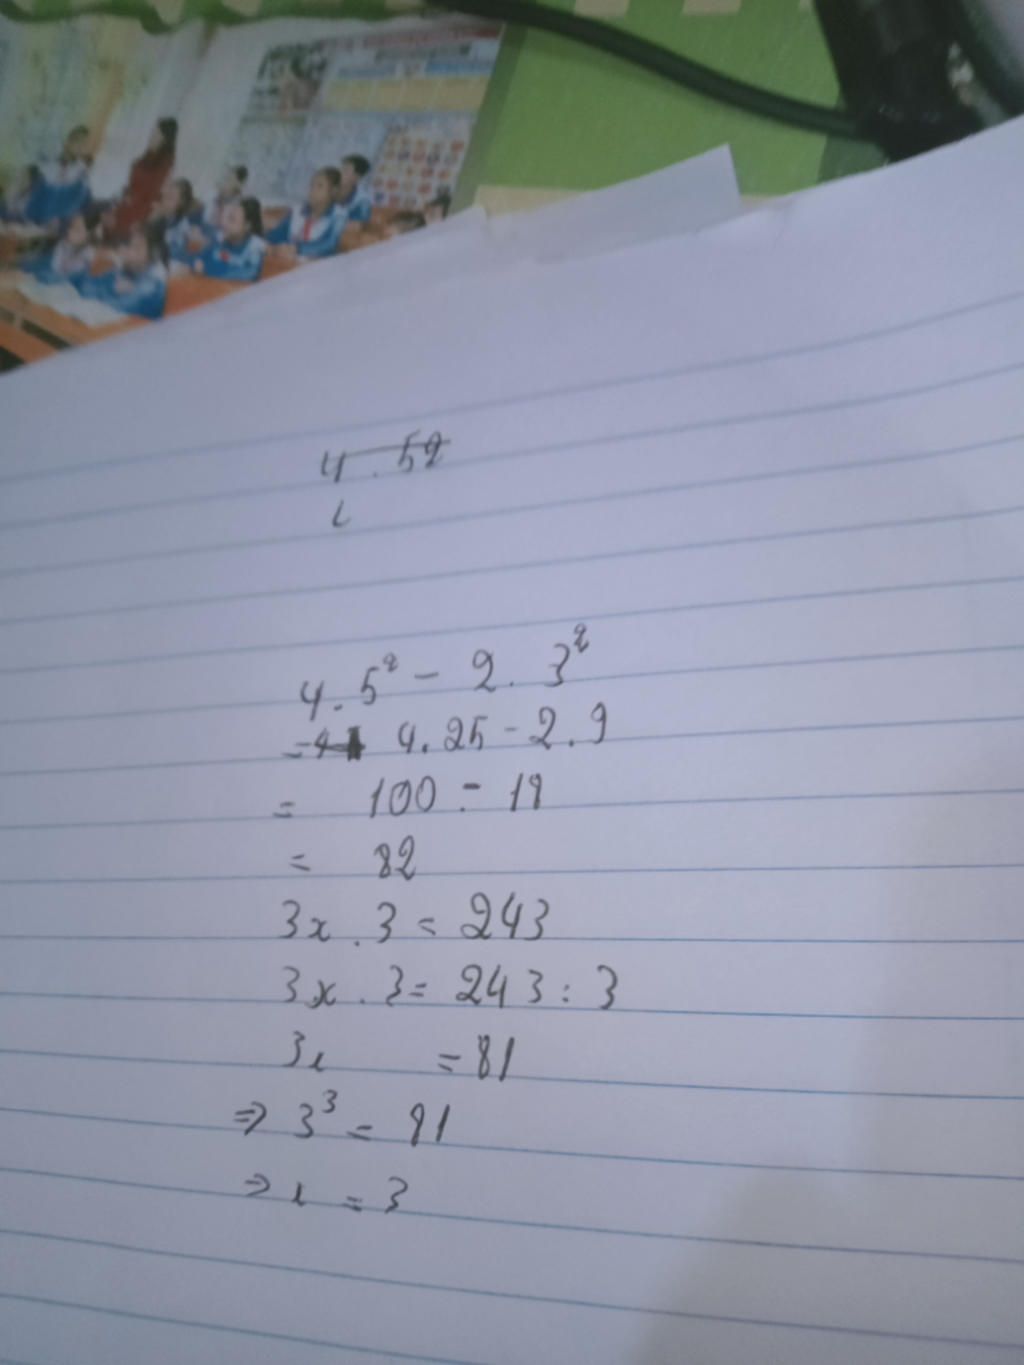 4 . 52
4.5² - 2. 3²
= 4.25 - 2.9
= 100 - 18
= 82
3x . 3 = 243
3x . 3 = 243 : 3
3x = 81
⇒ 3³ = 81
⇒ x = 3